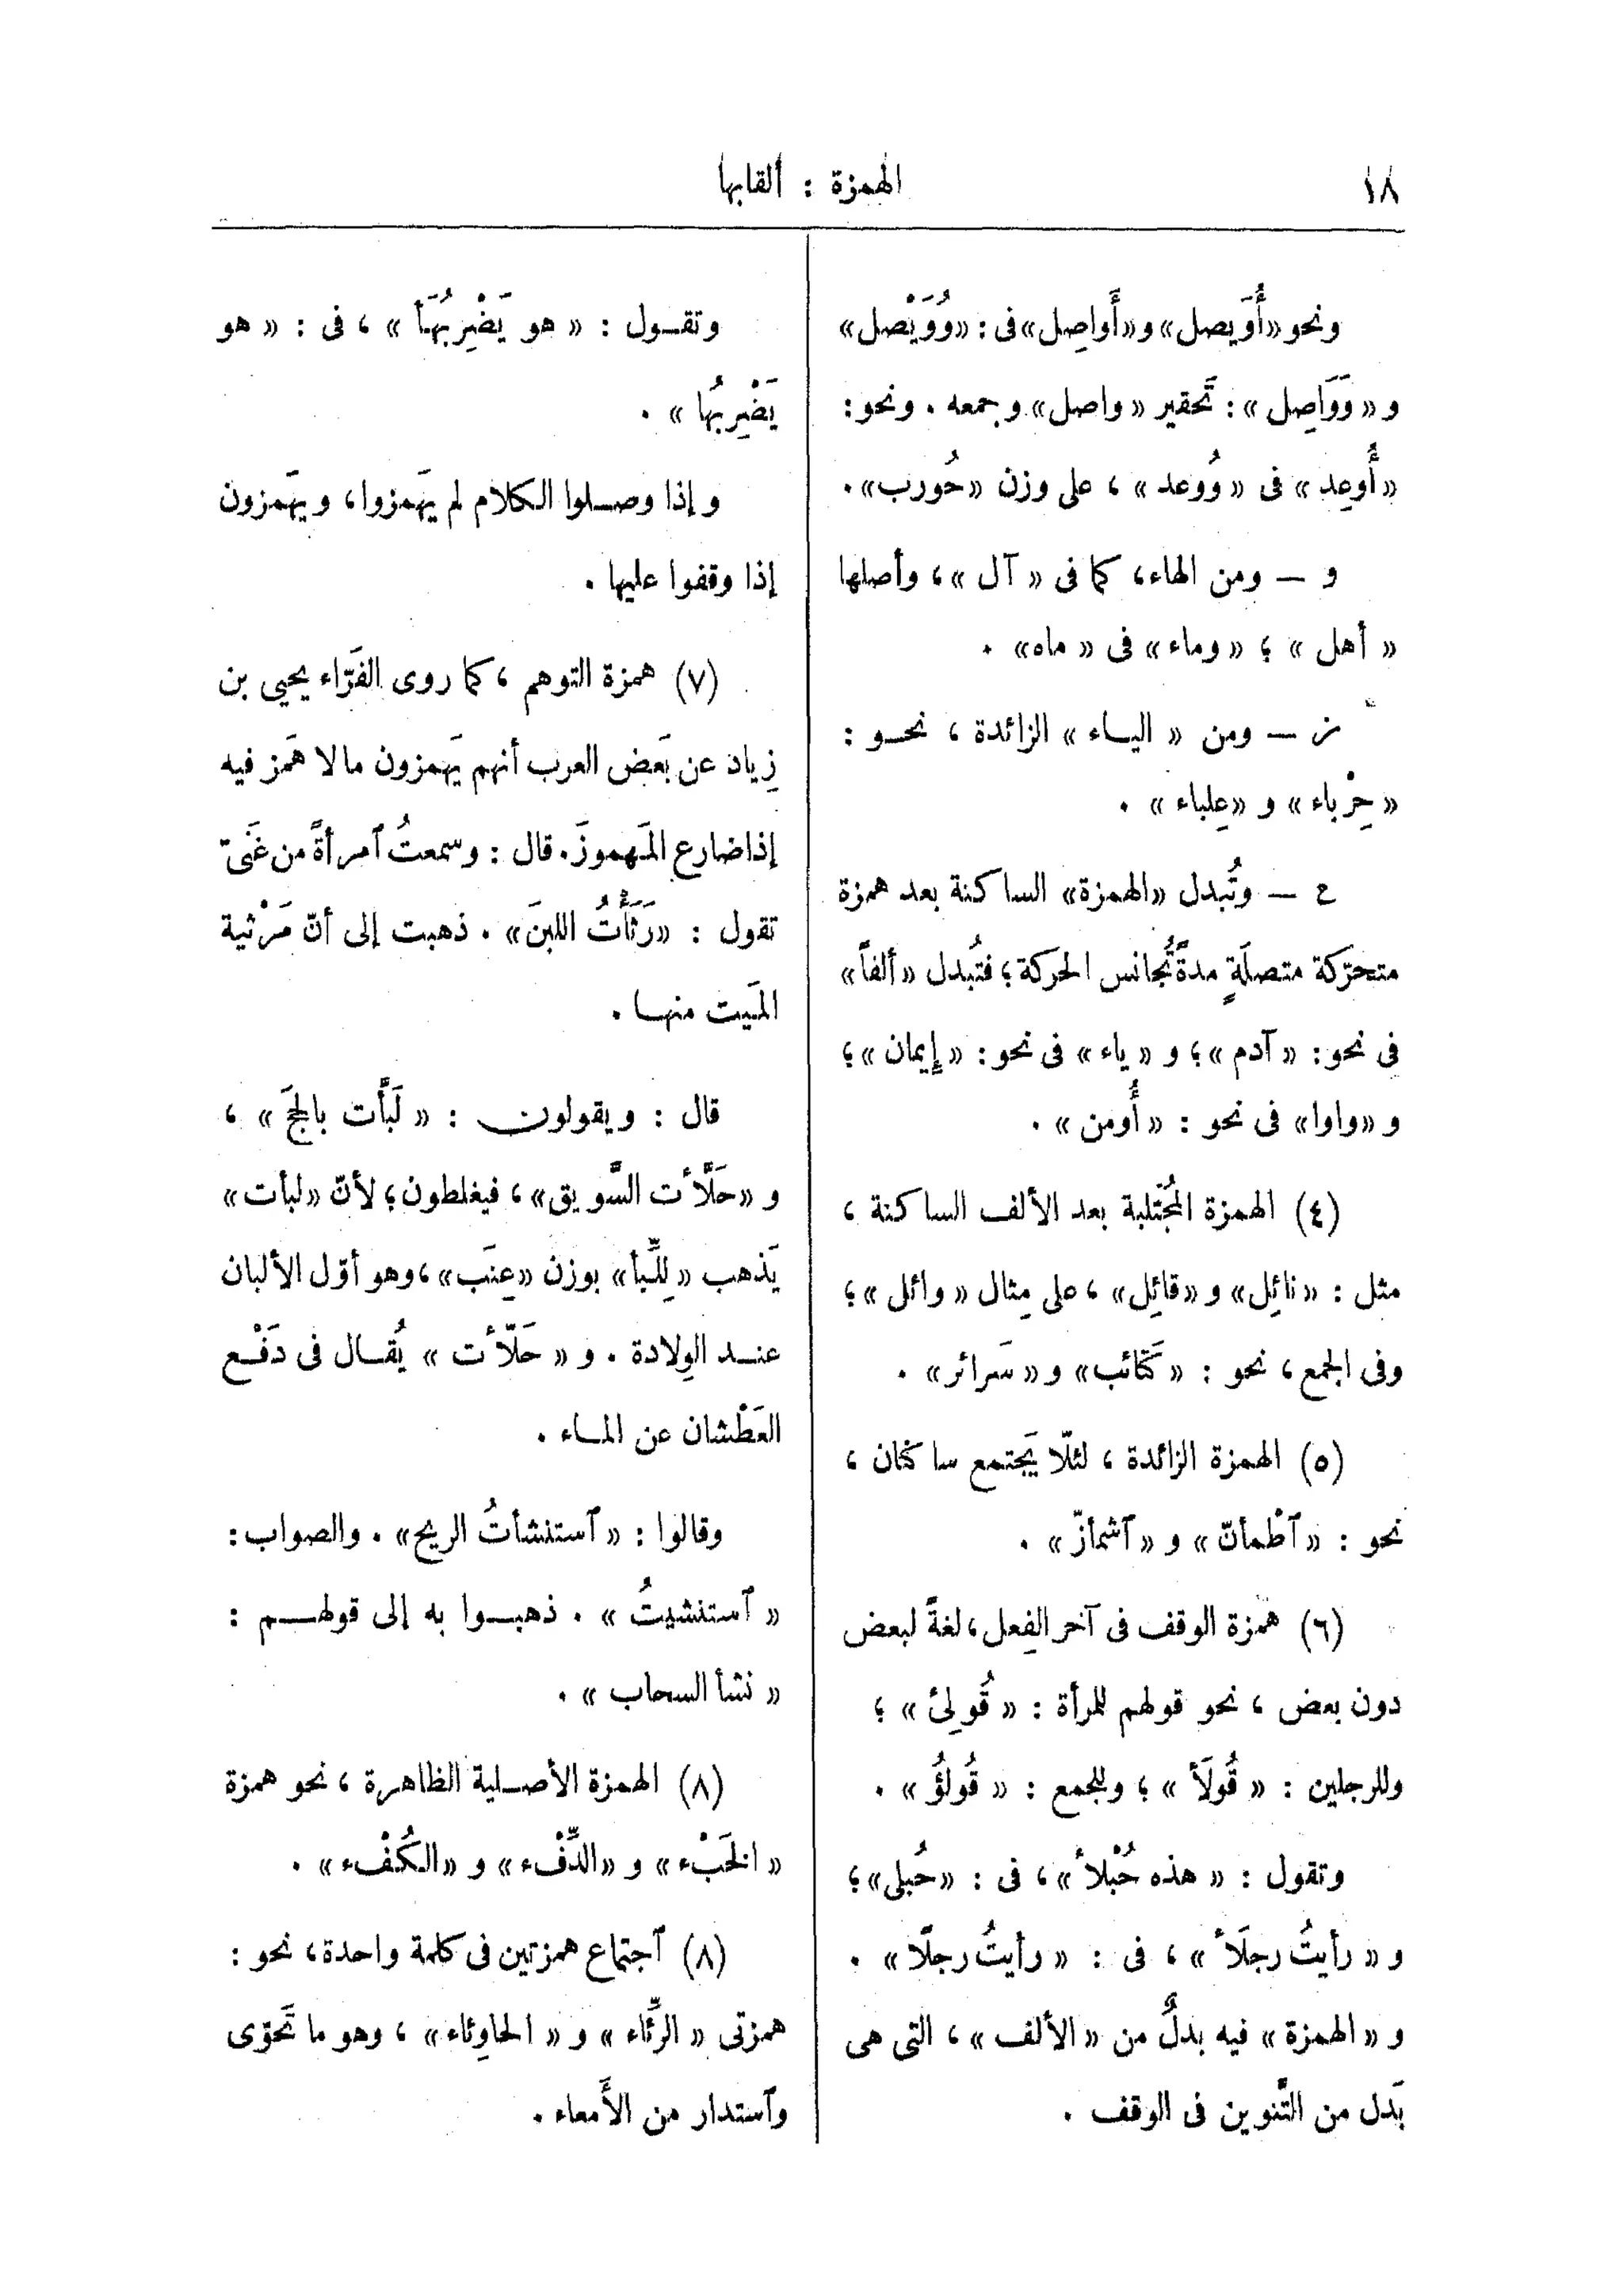 ١٨
الهمزة : ألقابها
ونحو «أُوَيصل» و«أَواصِل» فى : «وُوَيْصل»
و « وَوَاصِل » : تَحقير « واصل» وجمعه . ونحو :
«أُوعِد» فى «وُوعد » ، على وزن «حُورب» .
و – ومن الهاء، كما فى « آل »، وأصلها
« أهل » ؛ «وماء» فى « ماه» .
ز – ومن « اليـاء » الزائدة ، نحـو :
« حِرْباء » و «عِلباء » .
ح – وتُبدل «الهمزة» الساكنة بعد همزة
متحرّكة متصلَةٍ مدةً تُجانس الحركة ؛ فتُبدل «ألفاً»
فى نحو: « آدم »؛ و « ياء » فى نحو: « إيمان »؛
و «واوا» فى نحو : « أُومن » .
(٤) الهمزة المُجتَلبة بعد الألف الساكنة ،
مثل : «نائِل» و «قائِل» ، على مِثال « وائل »؛
وفى الجمع، نحو : « كَتَائب» و «سَرائر» .
(٥) الهمزة الزائدة ، لئلّا يَجتمع ساكنان ،
نحو : «ٱطْمأنّ » و «ٱشمأزّ » .
(٦) همزة الوقف فى آخر الفِعل، لغةً لبعض
دون بعض ، نحو قولهم للمرأة : « قُولِئ » ؛
وللرجلين : « قُولَأ » ؛ وللجمع : « قُولُؤ » .
وتقول : « هذه حُبْلأ »، فى : «حُبلى»؛
و « رأيتُ رجلَأ »، فى : « رأيتُ رجلًا » .
و « الهمزة » فيه بدلٌ من « الألف » ، التى هى
بَدل من التَّنوين فى الوقف .
وتقـول : « هو يَضْرِبُهَأ » ، فى : « هو
يَضْرِبُها » .
وإذا وصـلوا الكلام لم يَهمزوا، ويَهمزون
إذا وقفوا عليها .
(٧) همزة التوهم ، كما روى الفَرّاء يحيى بن
زِياد عن بَعض العرب أنهم يَهمزون مالا هَمز فيه
إذا ضارع المَهموزَ. قال : وسمعتُ ٱمرأةً من غَنىّ
تقول : «رَثَأْتُ اللبنَ» . ذهبت إلى أنّ مَرْثية
المَيت منهـا .
قال : ويقولون : « لَبَّأت بالحَجّ » ،
و «حَلَّأت السَّويق» ، فيغلطون؛ لأنّ «لبأت»
يَذهب «لِلِّبأ» بوزن «عِنَب»، وهو أوّل الألبان
عنـد الوِلادة . و « حَلّأت » يُقـال فى دَفْـع
العَطْشان عن المـاء .
وقالوا : «ٱستنشأتُ الريح» . والصواب :
« ٱستنشيتُ » . ذهبـوا به إلى قولهـم :
« نشأ السحاب » .
(٨) الهمزة الأصـلية الظاهرة ، نحو همزة
« الخَبْء » و «الدِّفْء» و «الكُفْء » .
(٨) ٱجتماع همزتين فى كلمة واحدة، نحو :
همزتى « الرِّئاء » و « الحاوِئاء» ، وهو ما تَحَوّى
وٱستدار من الأَمعاء .